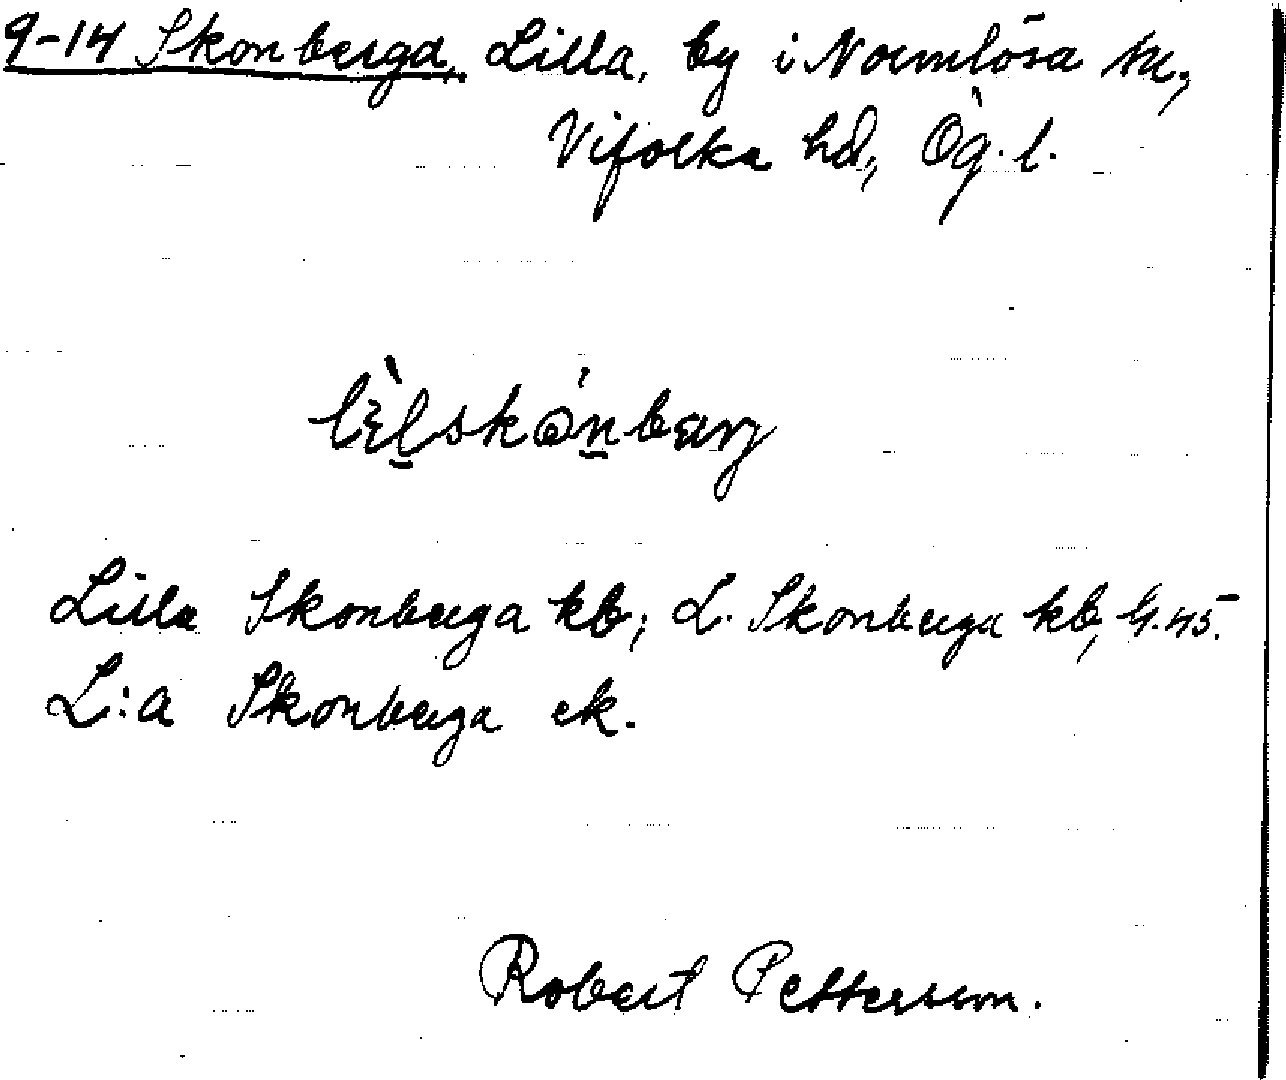 9-14 Skonberga, Lilla, by i Normlösa sn,
Vifolka hd, Ög. l.
Lilla Skonberga kb; L. Skonberga kb, G.45.
L:a Skonberga ek.
Robert Petterson.